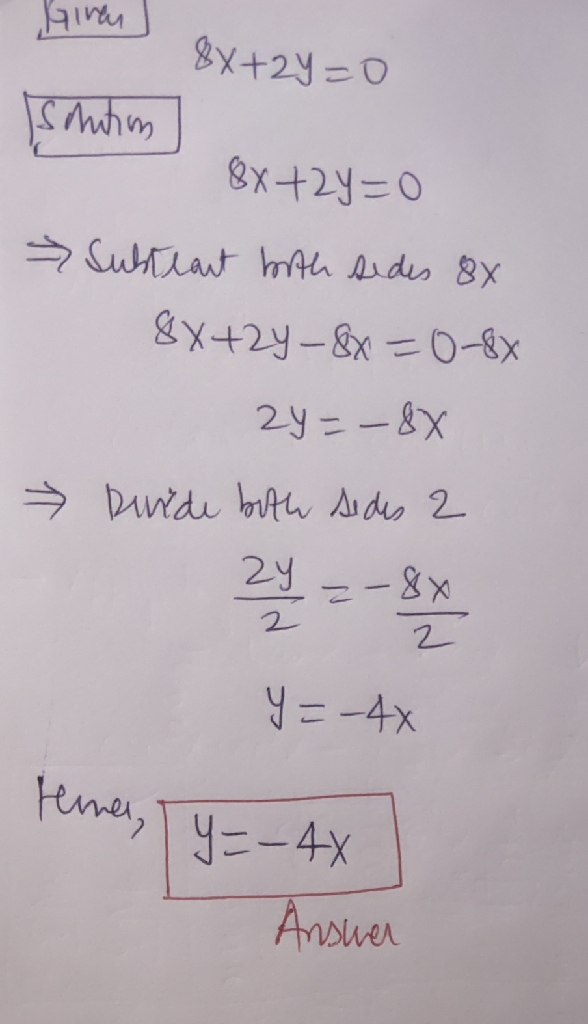 Given
8x+2y=0
Solution
8x+2y=0
⇒ Subtract both sides 8x
8x+2y-8x=0-8x
2y=-8x
⇒ Divide both sides 2
2y/2=-8x/2
y=-4x
Hence,
y=-4x
Answer